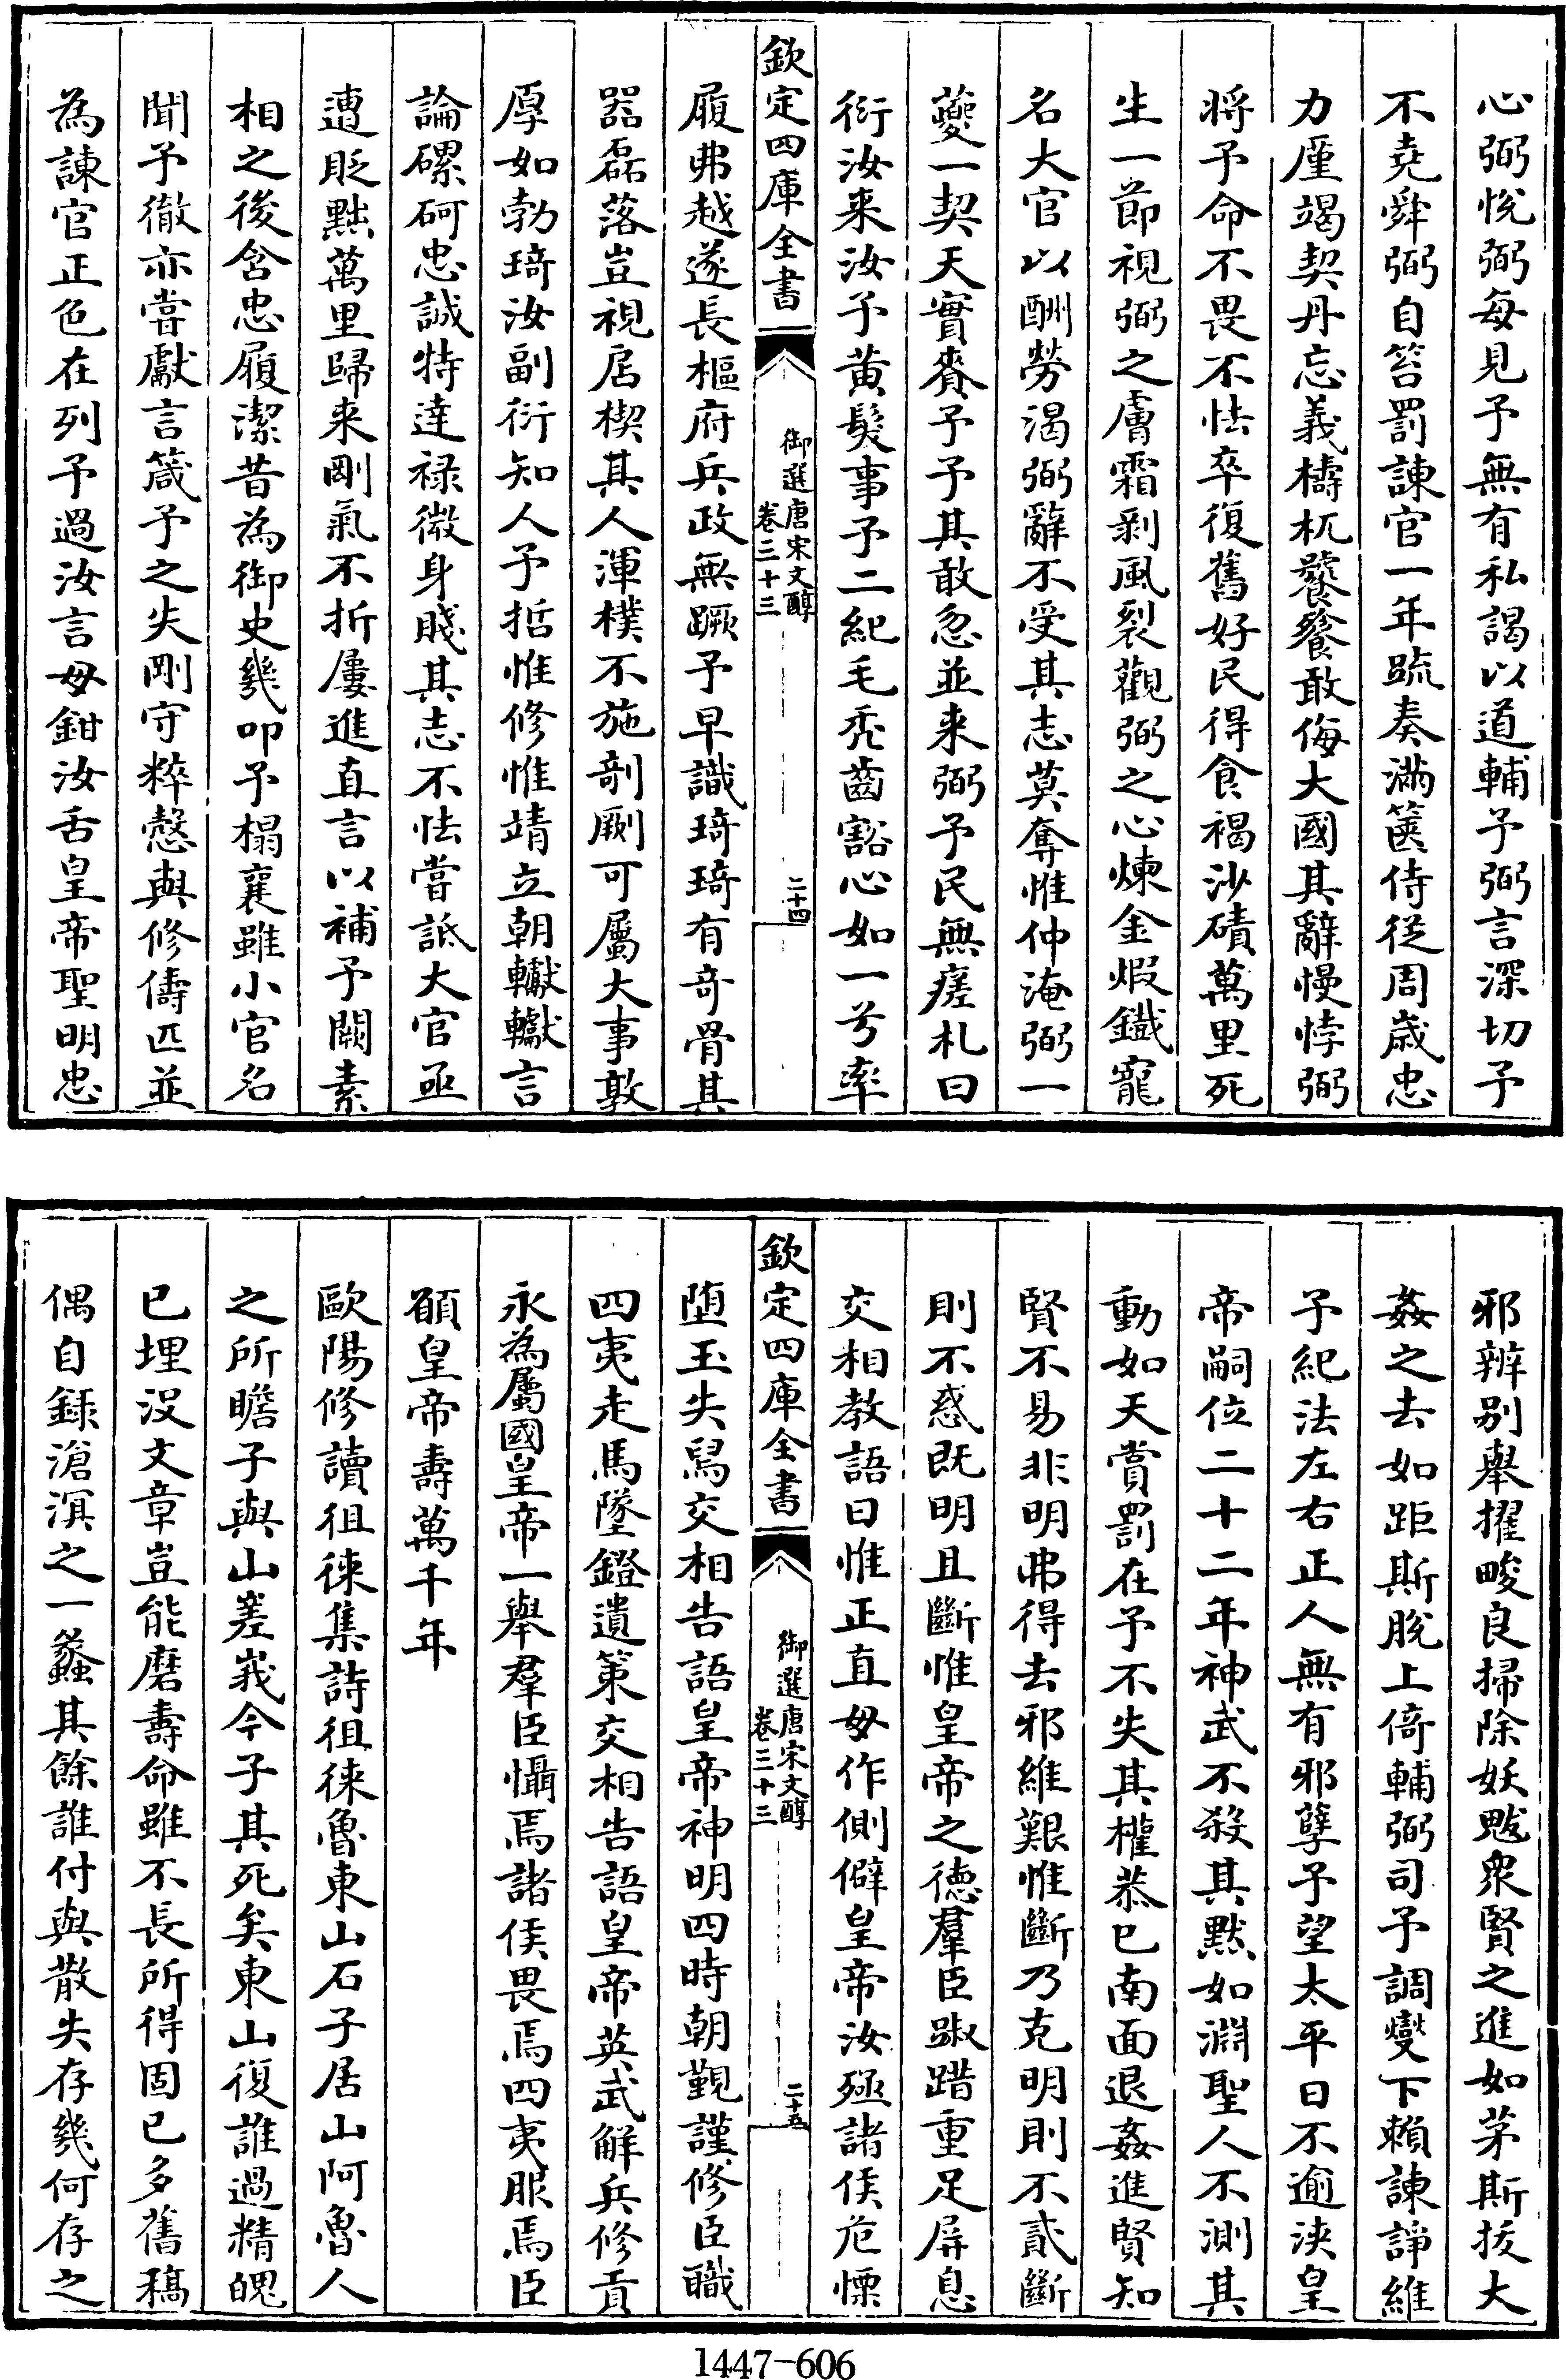 心弼悅弼每見予無有私謁以道輔予弼言深切予
不堯舜弼自笞罰諫官一年疏奏滿篋侍從周歲忠
力廑竭契丹忘義檮杌饕餮敢侮大國其辭慢悖弼
將予命不畏不怯卒復舊好民得食褐沙磧萬里死
生一節視弼之膚霜剥風裂觀弼之心煉金煅鐵寵
名大官以酬勞渴弼辭不受其志莫奪惟仲淹弼一
夔一契天實賚予予其敢忽並来弼予民無瘥札曰
衍汝来汝予黄髮事予二紀毛秃齒豁心如一兮率
欽定四庫全書
御選唐宋文醇
卷三十三
二十四
履弗越遂長樞府兵政無蹶予早識琦琦有奇骨其
器磊落豈視扂楔其人渾樸不施剞劂可屬大事敦
厚如勃琦汝副衍知人予哲惟修惟靖立朝轥轥言
論磥砢忠誠特達禄微身賤其志不怯嘗詆大官亟
遭貶黜萬里歸来剛氣不折屢進直言以補予闕素
相之後含忠履潔昔為御史幾叩予榻襄雖小官名
聞予徹亦嘗獻言箴予之失剛守粹慤與修儔匹並
為諫官正色在列予過汝言毋鉗汝舌皇帝聖明忠
邪辨别舉擢畯良掃除妖魃衆賢之進如茅斯拔大
姦之去如距斯脱上倚輔弼司予調燮下賴諫諍維
予紀法左右正人無有邪孽予望太平日不逾浹皇
帝嗣位二十二年神武不殺其默如淵聖人不測其
動如天賞罰在予不失其權恭已南面退姦進賢知
賢不易非明弗得去邪維艱惟斷乃克明則不貳斷
則不惑既明且斷惟皇帝之德羣臣踧踖重足屏息
交相教語曰惟正直毋作側僻皇帝汝殛諸侯危慄
欽定四庫全書
御選唐宋文醇
卷三十三
二十五
墮玉失舄交相告語皇帝神明四時朝覲謹修臣職
四夷走馬墜鐙遺策交相告語皇帝英武解兵修貢
永為屬國皇帝一舉羣臣懾焉諸侯畏焉四夷服焉臣
願皇帝壽萬千年
歐陽修讀徂徠集詩徂徠魯東山石子居山阿魯人
之所瞻子與山差峩今子其死矣東山復誰過精魄
已埋没文章豈能磨壽命雖不長所得固已多舊稿
偶自錄滄溟之一蠡其餘誰付與散失存幾何存之
1447-606